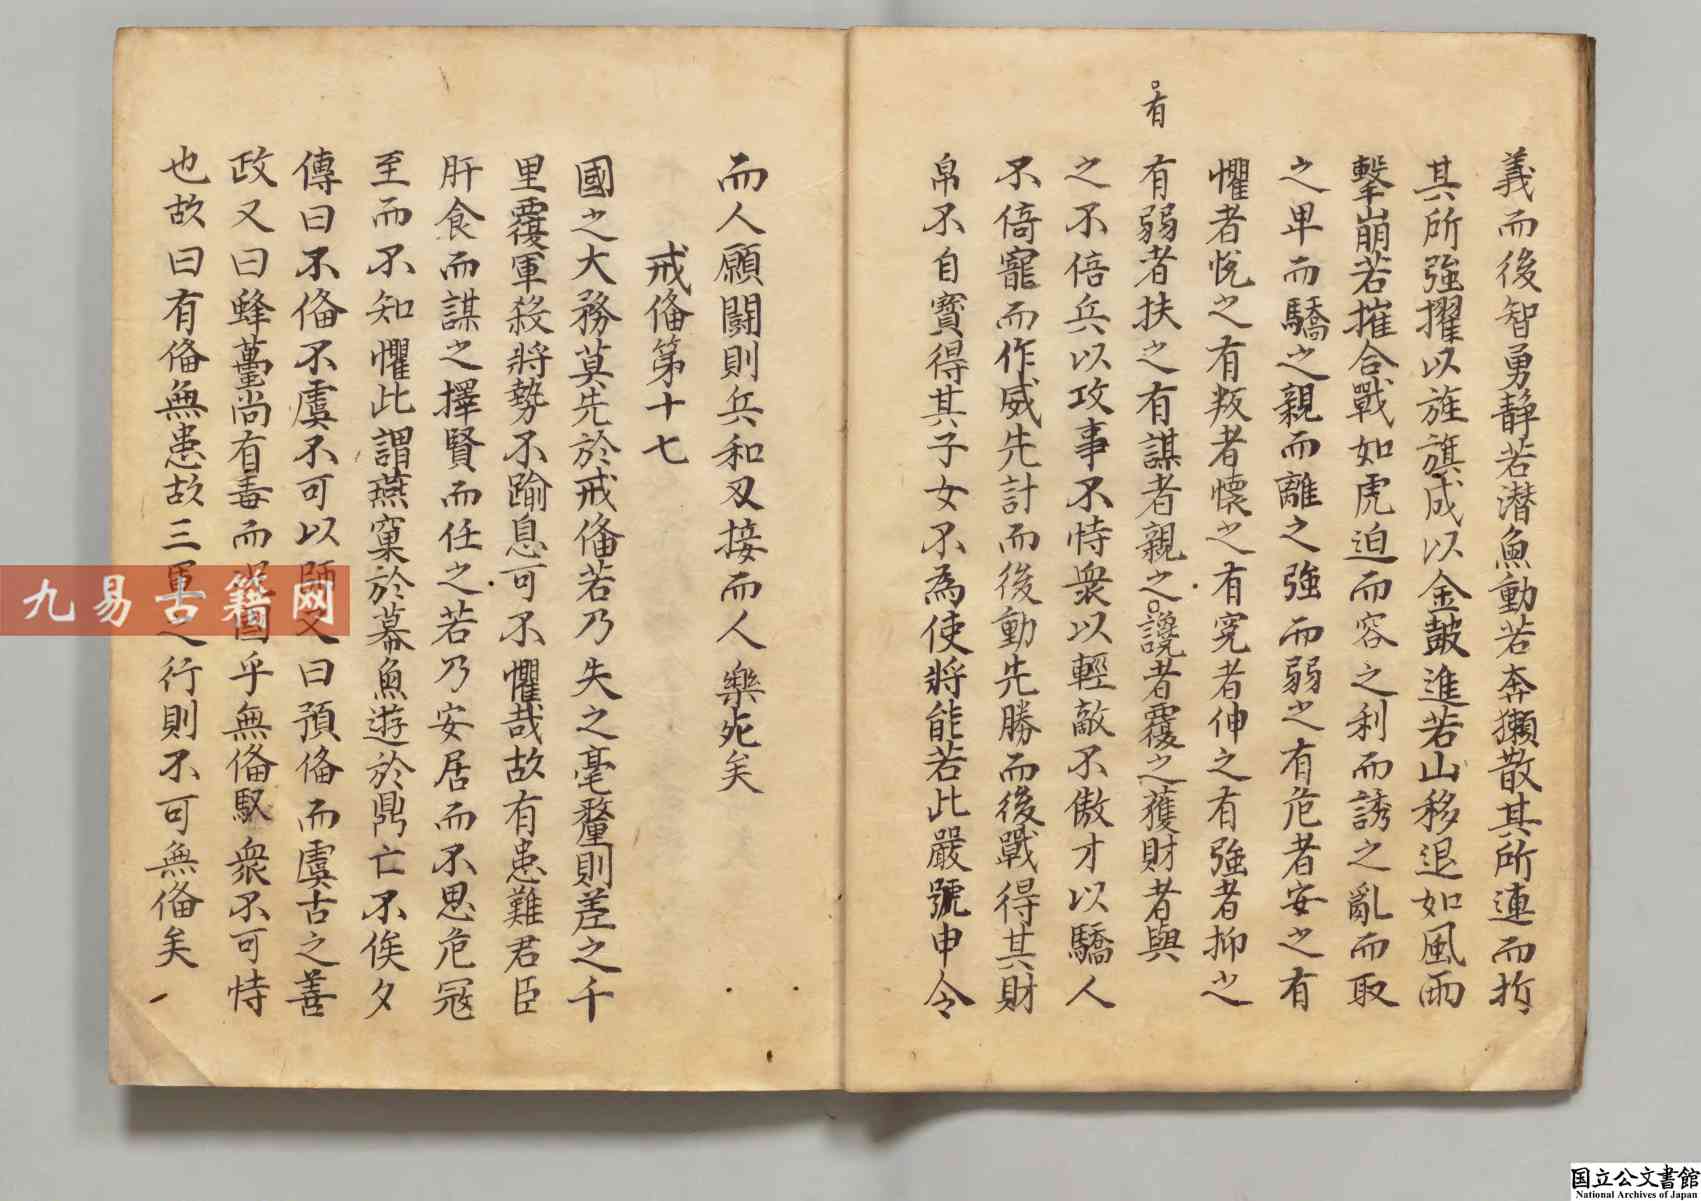 義而後智勇静若潜魚動若奔獺散其所連而折
其所強擢以旌旗戍以金鼓進若山移退如風雨
擊崩若摧合戰如虎迫而容之利而誘之亂而取
之卑而驕之親而離之強而弱之有危者安之有
懼者悅之有叛者懷之有寃者伸之有強者抑之
有弱者扶之有謀者親之讒者覆之獲財者與
有
之不倍兵以攻事不恃衆以輕敵不傲才以驕人
不倚寵而作威先計而後動先勝而後戰得其財
帛不自寳得其子女不為使將能若此嚴號申令
而人願鬪則兵和刃接而人樂死矣
戒俻第十七
國之大務莫先於戒俻若乃失之毫釐則差之千
里覆軍殺將勢不踰息可不懼哉故有患難君臣
肝食而謀之擇賢而任之若乃安居而不思危冦
至而不知懼此謂燕窠於幕魚遊於鼎亡不俟夕
傳曰不俻不虞不可以師又曰預俻而虞古之善
政又曰蜂蠆尚有毒而況國乎無俻馭衆不可恃
也故曰有俻無患故三軍之行則不可無俻矣
九易古籍网
国立公文書館
National Archives of Japan